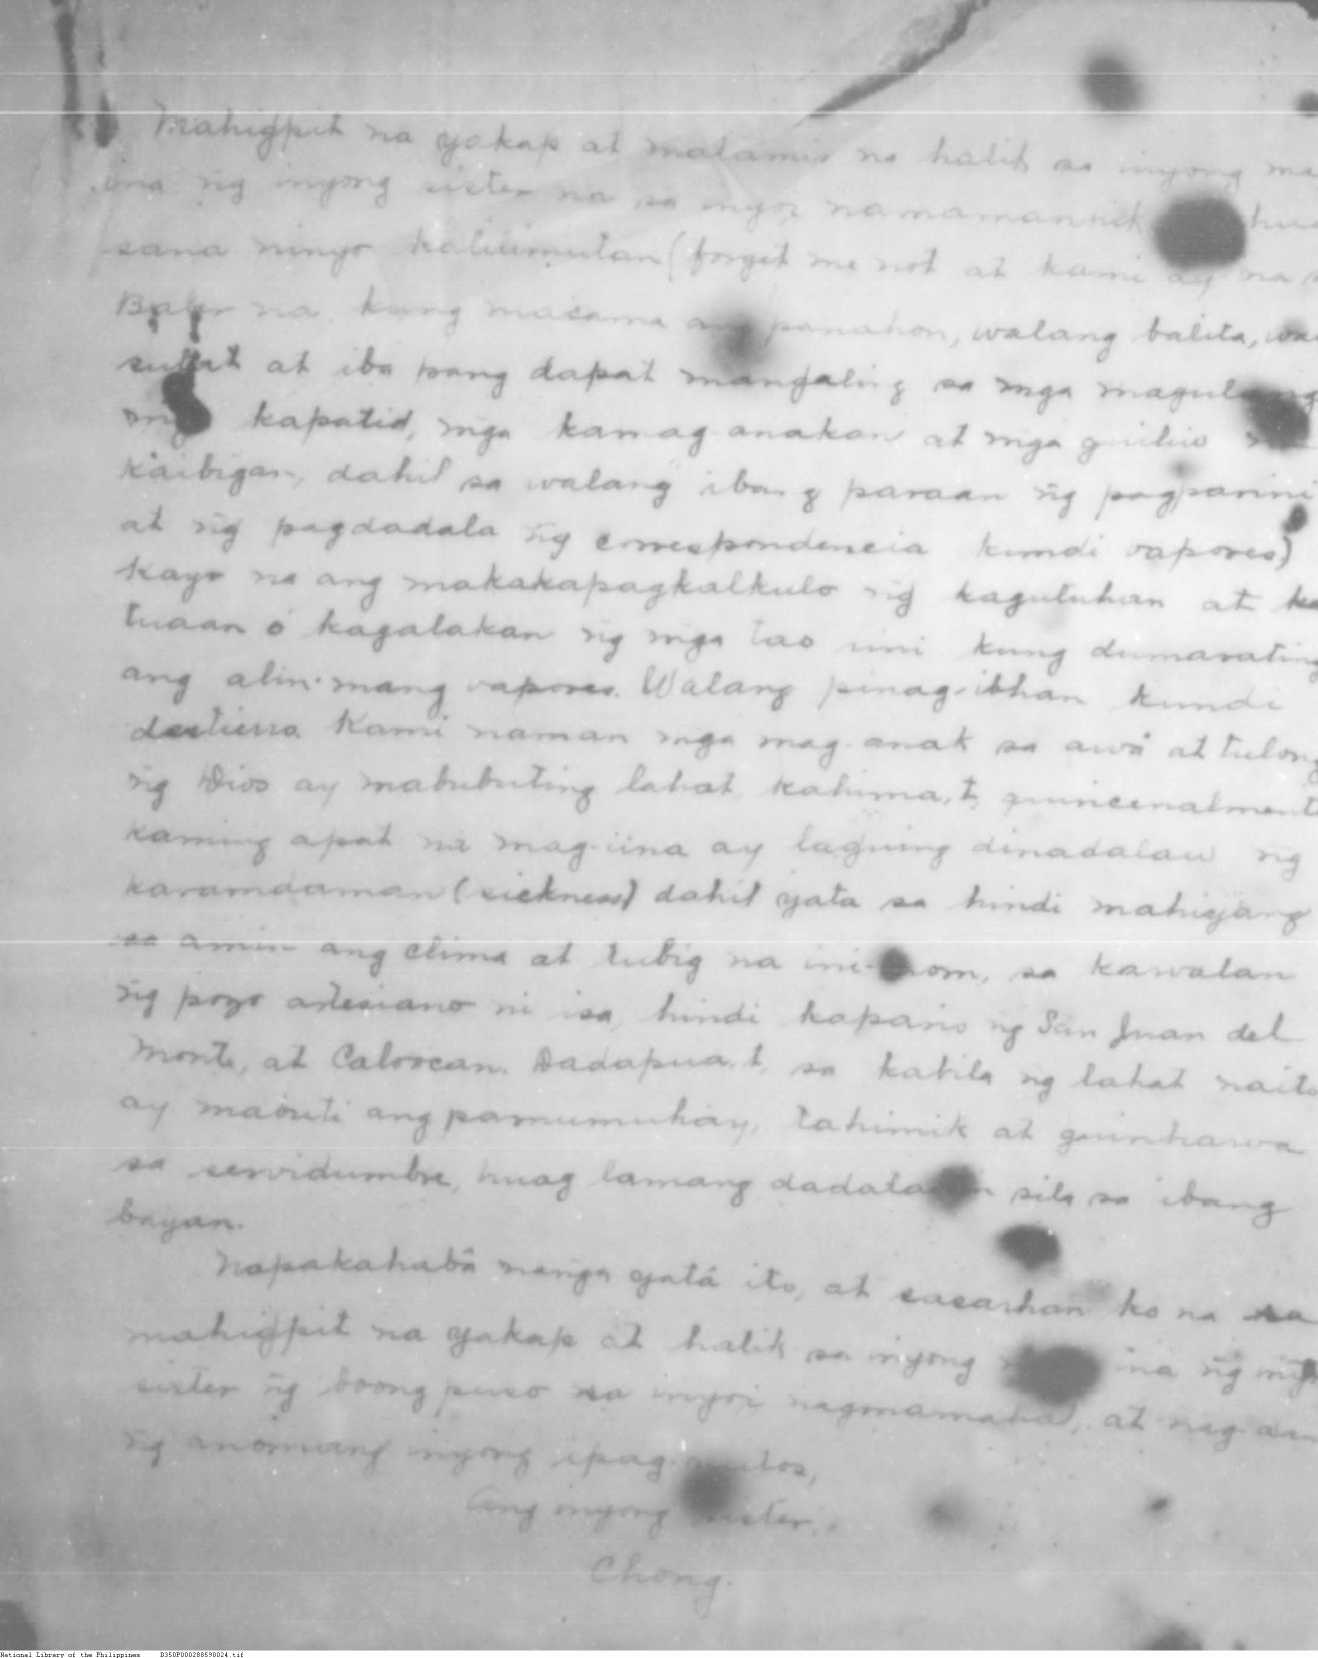 Mahigpit na yakap at matamis na halik sa inyong mag
ina ng inyong sister na sa inyoi namamanhik hua
sana ninyo kalilimutan (forget me not at kami ay na s
Baler na kung masama ang panahon, walang balita, wa
sullat at iba pang dapat mangaling sa mga magulang
mga kapatid, mga kamag-anakan at mga guiliw
kaibigan, dahil sa walang ibang paraan ng pagparini
at ng pagdadala ng correspondencia kundi vapores)
Kayo na ang makakapagkalkulo ng kaguluhan at ka
tuaan ó kagalakan ng mga tao rini kung dumarating
ang alin-mang vapores. Walang pinag-ibhan kundi
destierro. Kami naman mga mag-anak sa awa at tulong
ng Dios ay mabubuting lahat, kahima,t, quincenalmente
kaming apat na mag-iina ay laguing dinadalaw ng
karamdaman (sickness) dahil yata sa hindi mahiyang
sa amin ang clima at tubig na ini-inom, sa kawalan
ng pozo artesiano ni isa, hindi kaparis ng San Juan del
Monte, at Caloocan. Dadapua,t, sa kabila ng lahat naito
ay mabuti ang pamumuhay, tahimik at guinhawa
sa servidumbre, huag lamang dadalawin sila sa ibang
bayan.
Napakahabâ manga yatá ito, at sasarhan ko na sa
mahigpit na yakap at halik sa inyong ina ng inyo
sister ng boong puso sa inyoi nagmamahal, at nag-aan
ng anomang inyong ipag-uutos,
Ang inyong sister,
Chong.
National Library of the Philippines D350P000288598024.tif